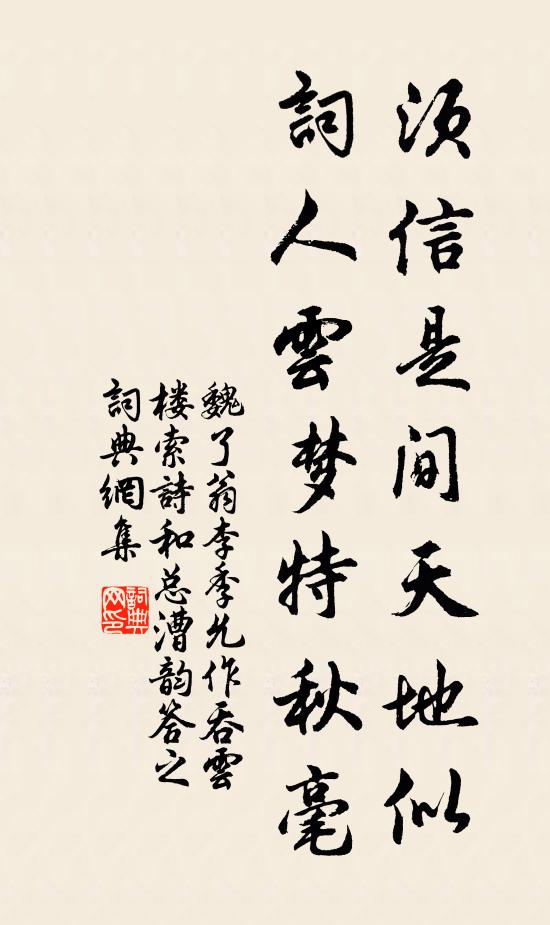 須信是间天地似
詞人雲梦特秋毫
魏了翁李季允作吞雲
楼索詩和总漕韵答之
詞典網集
詞典网印